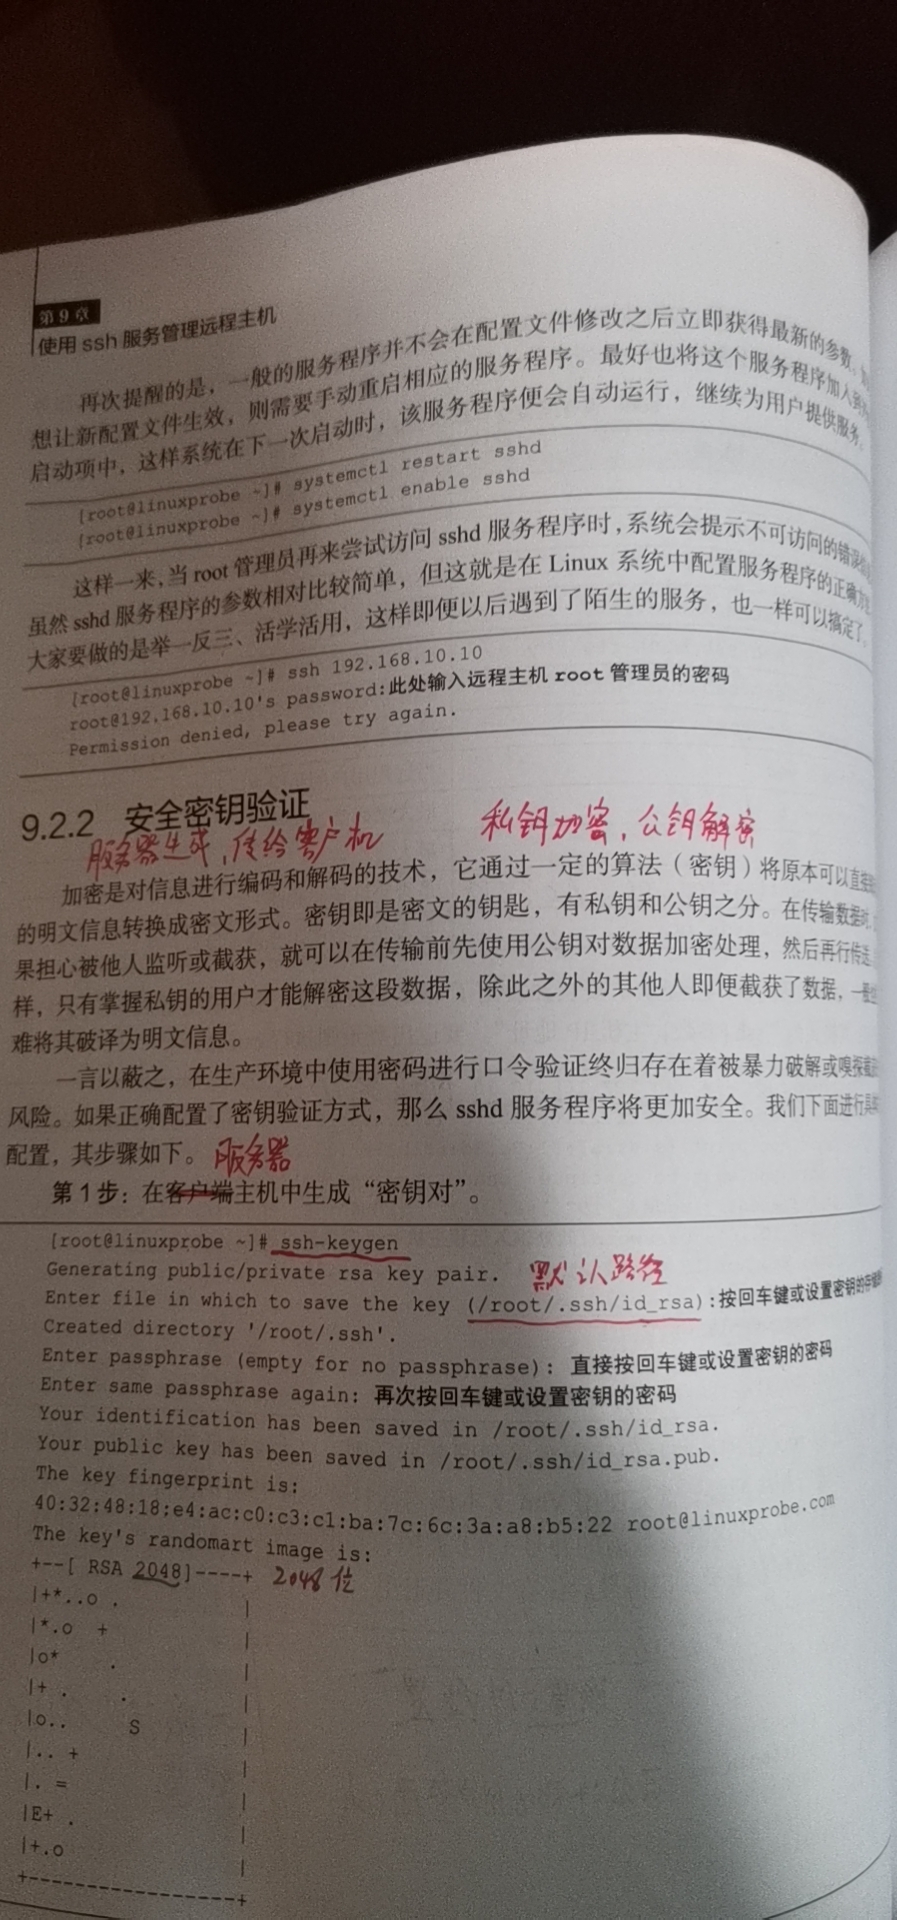 第9章
使用 ssh 服务管理远程主机
再次提醒的是，一般的服务程序并不会在配置文件修改之后立即获得最新的参数。
想让新配置文件生效，则需要手动重启相应的服务程序。最好也将这个服务程序加入到
启动项中，这样系统在下一次启动时，该服务程序便会自动运行，继续为用户提供服务。
[root@linuxprobe ~]# systemctl restart sshd
[root@linuxprobe ~]# systemctl enable sshd
这样一来，当 root 管理员再来尝试访问 sshd 服务程序时，系统会提示不可访问的错误
虽然 sshd 服务程序的参数相对比较简单，但这就是在 Linux 系统中配置服务程序的正确
大家要做的是举一反三、活学活用，这样即便以后遇到了陌生的服务，也一样可以搞定了。
[root@linuxprobe ~]# ssh 192.168.10.10
root@192.168.10.10's password:此处输入远程主机 root 管理员的密码
Permission denied, please try again.
9.2.2 安全密钥验证
服务器生成，传给客户机 私钥加密，公钥解密
加密是对信息进行编码和解码的技术，它通过一定的算法（密钥）将原本可以直接
的明文信息转换成密文形式。密钥即是密文的钥匙，有私钥和公钥之分。在传输数据时，
果担心被他人监听或截获，就可以在传输前先使用公钥对数据加密处理，然后再行传送。
样，只有掌握私钥的用户才能解密这段数据，除此之外的其他人即便截获了数据，一般
难将其破译为明文信息。
一言以蔽之，在生产环境中使用密码进行口令验证终归存在着被暴力破解或嗅探
风险。如果正确配置了密钥验证方式，那么 sshd 服务程序将更加安全。我们下面进行具体
配置，其步骤如下。 服务器
第 1 步：在客户端主机中生成“密钥对”。
[root@linuxprobe ~]# ssh-keygen
Generating public/private rsa key pair. 默认路径
Enter file in which to save the key (/root/.ssh/id_rsa):按回车键或设置密钥的存储
Created directory '/root/.ssh'.
Enter passphrase (empty for no passphrase): 直接按回车键或设置密钥的密码
Enter same passphrase again: 再次按回车键或设置密钥的密码
Your identification has been saved in /root/.ssh/id_rsa.
Your public key has been saved in /root/.ssh/id_rsa.pub.
The key fingerprint is:
40:32:48:18:e4:ac:c0:c3:c1:ba:7c:6c:3a:a8:b5:22 root@linuxprobe.com
The key's randomart image is:
+--[ RSA 2048]----+ 2048位
|+*..o . |
|*.o + |
|o* . |
|+ . . |
|o.. S |
|.. + |
|. = |
|E+ . |
|+.o |
+-----------------+